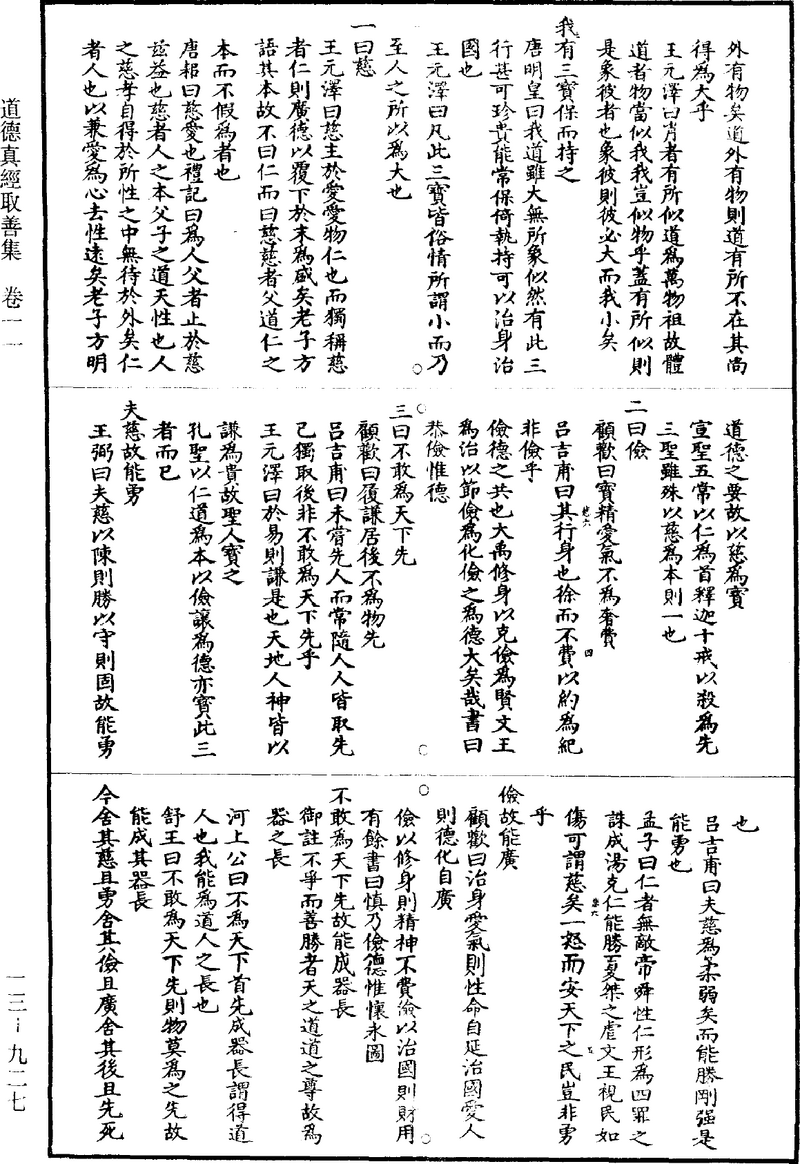 外有物矣道外有物則道有所不在其尚
得為大乎
王元澤曰肖者有所似道為萬物祖故體
道者物當似我我豈似物乎蓋有所似則
是象彼者也象彼則彼必大而我小矣
我有三寶保而持之
唐明皇曰我道雖大無所象似然有此三
行甚可珍貴能常保倚執持可以治身治
國也
王元澤曰凡此三寶皆俗情所謂小而乃
至人之所以為大也
一曰慈
王元澤曰慈主於愛愛物仁也而獨稱慈
者仁則廣德以覆下於末為盛矣老子方
語其本故不曰仁而曰慈慈者父道仁之
本而不假為者也
唐耜曰慈愛也禮記曰為人父者止於慈
茲益也慈者人之本父子之道天性也人
之慈孝自得於所性之中無待於外矣仁
者人也以兼愛為心去性遠矣老子方明
道德之要故以慈為寶
宣聖五常以仁為首釋迦十戒以殺為先
三聖雖殊以慈為本則一也
二曰儉
顧歡曰寶精愛氣不為奢費
呂吉甫曰其行身也徐而不費以約為紀
非儉乎
儉德之共也大禹修身以克儉為賢文王
為治以節儉為化儉之為德大矣哉書曰
恭儉惟德
三曰不敢為天下先
顧歡曰履謙居後不為物先
呂吉甫曰未嘗先人而常隨人人皆取先
己獨取後非不敢為天下先乎
王元澤曰於易則謙是也天地人神皆以
謙為貴故聖人寶之
孔聖以仁道為本以儉讓為德亦寶此三
者而已
夫慈故能勇
王弼曰夫慈以陳則勝以守則固故能勇
也
呂吉甫曰夫慈為柔弱矣而能勝剛強是
能勇也
孟子曰仁者無敵帝舜性仁形為四罪之
誅成湯克仁能勝夏桀之虐文王視民如
傷可謂慈矣一怒而安天下之民豈非勇
乎
儉故能廣
顧歡曰治身愛氣則性命自延治國愛人
則德化自廣
儉以修身則精神不費儉以治國則財用
有餘書曰慎乃儉德惟懷永圖
不敢為天下先故能成器長
御註不爭而善勝者天之道道之尊故為
器之長
河上公曰不為天下首先成器長謂得道
人也我能為道人之長也
舒王曰不敢為天下先則物莫為之先故
能成其器長
今舍其慈且勇舍其儉且廣舍其後且先死
道德真經取善集 卷一一
一三—九二七